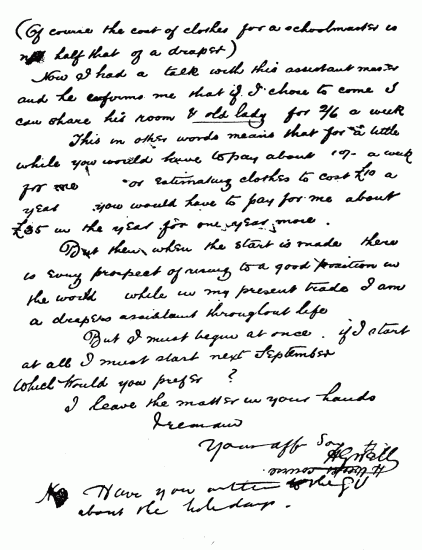 (Of course the cost of clothes for a schoolmaster is
not half that of a draper)
Now I had a talk with this assistant master
and he informs me that if I chose to come I
can share his room & old lady for 2/6 a week
This in other words means that for a little
while you would have to pay about 10/- a week
for me or estimating clothes to cost £10 a
year you would have to pay for me about
£35 in the year for one year more.
But then, when the start is made there
is every prospect of rising to a good position in
the world while in my present trade I am
a drapers assistant throughout life
But I must begin at once. if I start
at all I must start next September
Which Would you prefer ?
I leave the matter in your hands
I remain
Your aff Son
H G Wells
Have you written to the G V
about the holidays.